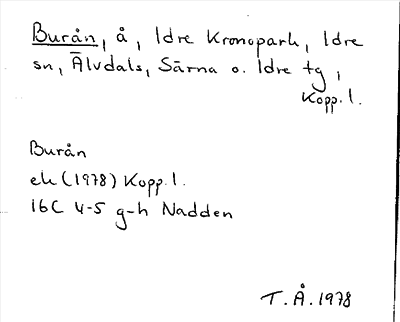 Burån, å, Idre Kronopark, Idre
sn, Älvdals, Särna o. Idre tg,
Kopp. l.
Burån
ek (1978) Kopp. l.
16C 4-5 g-h Nadden
T. Å. 1978